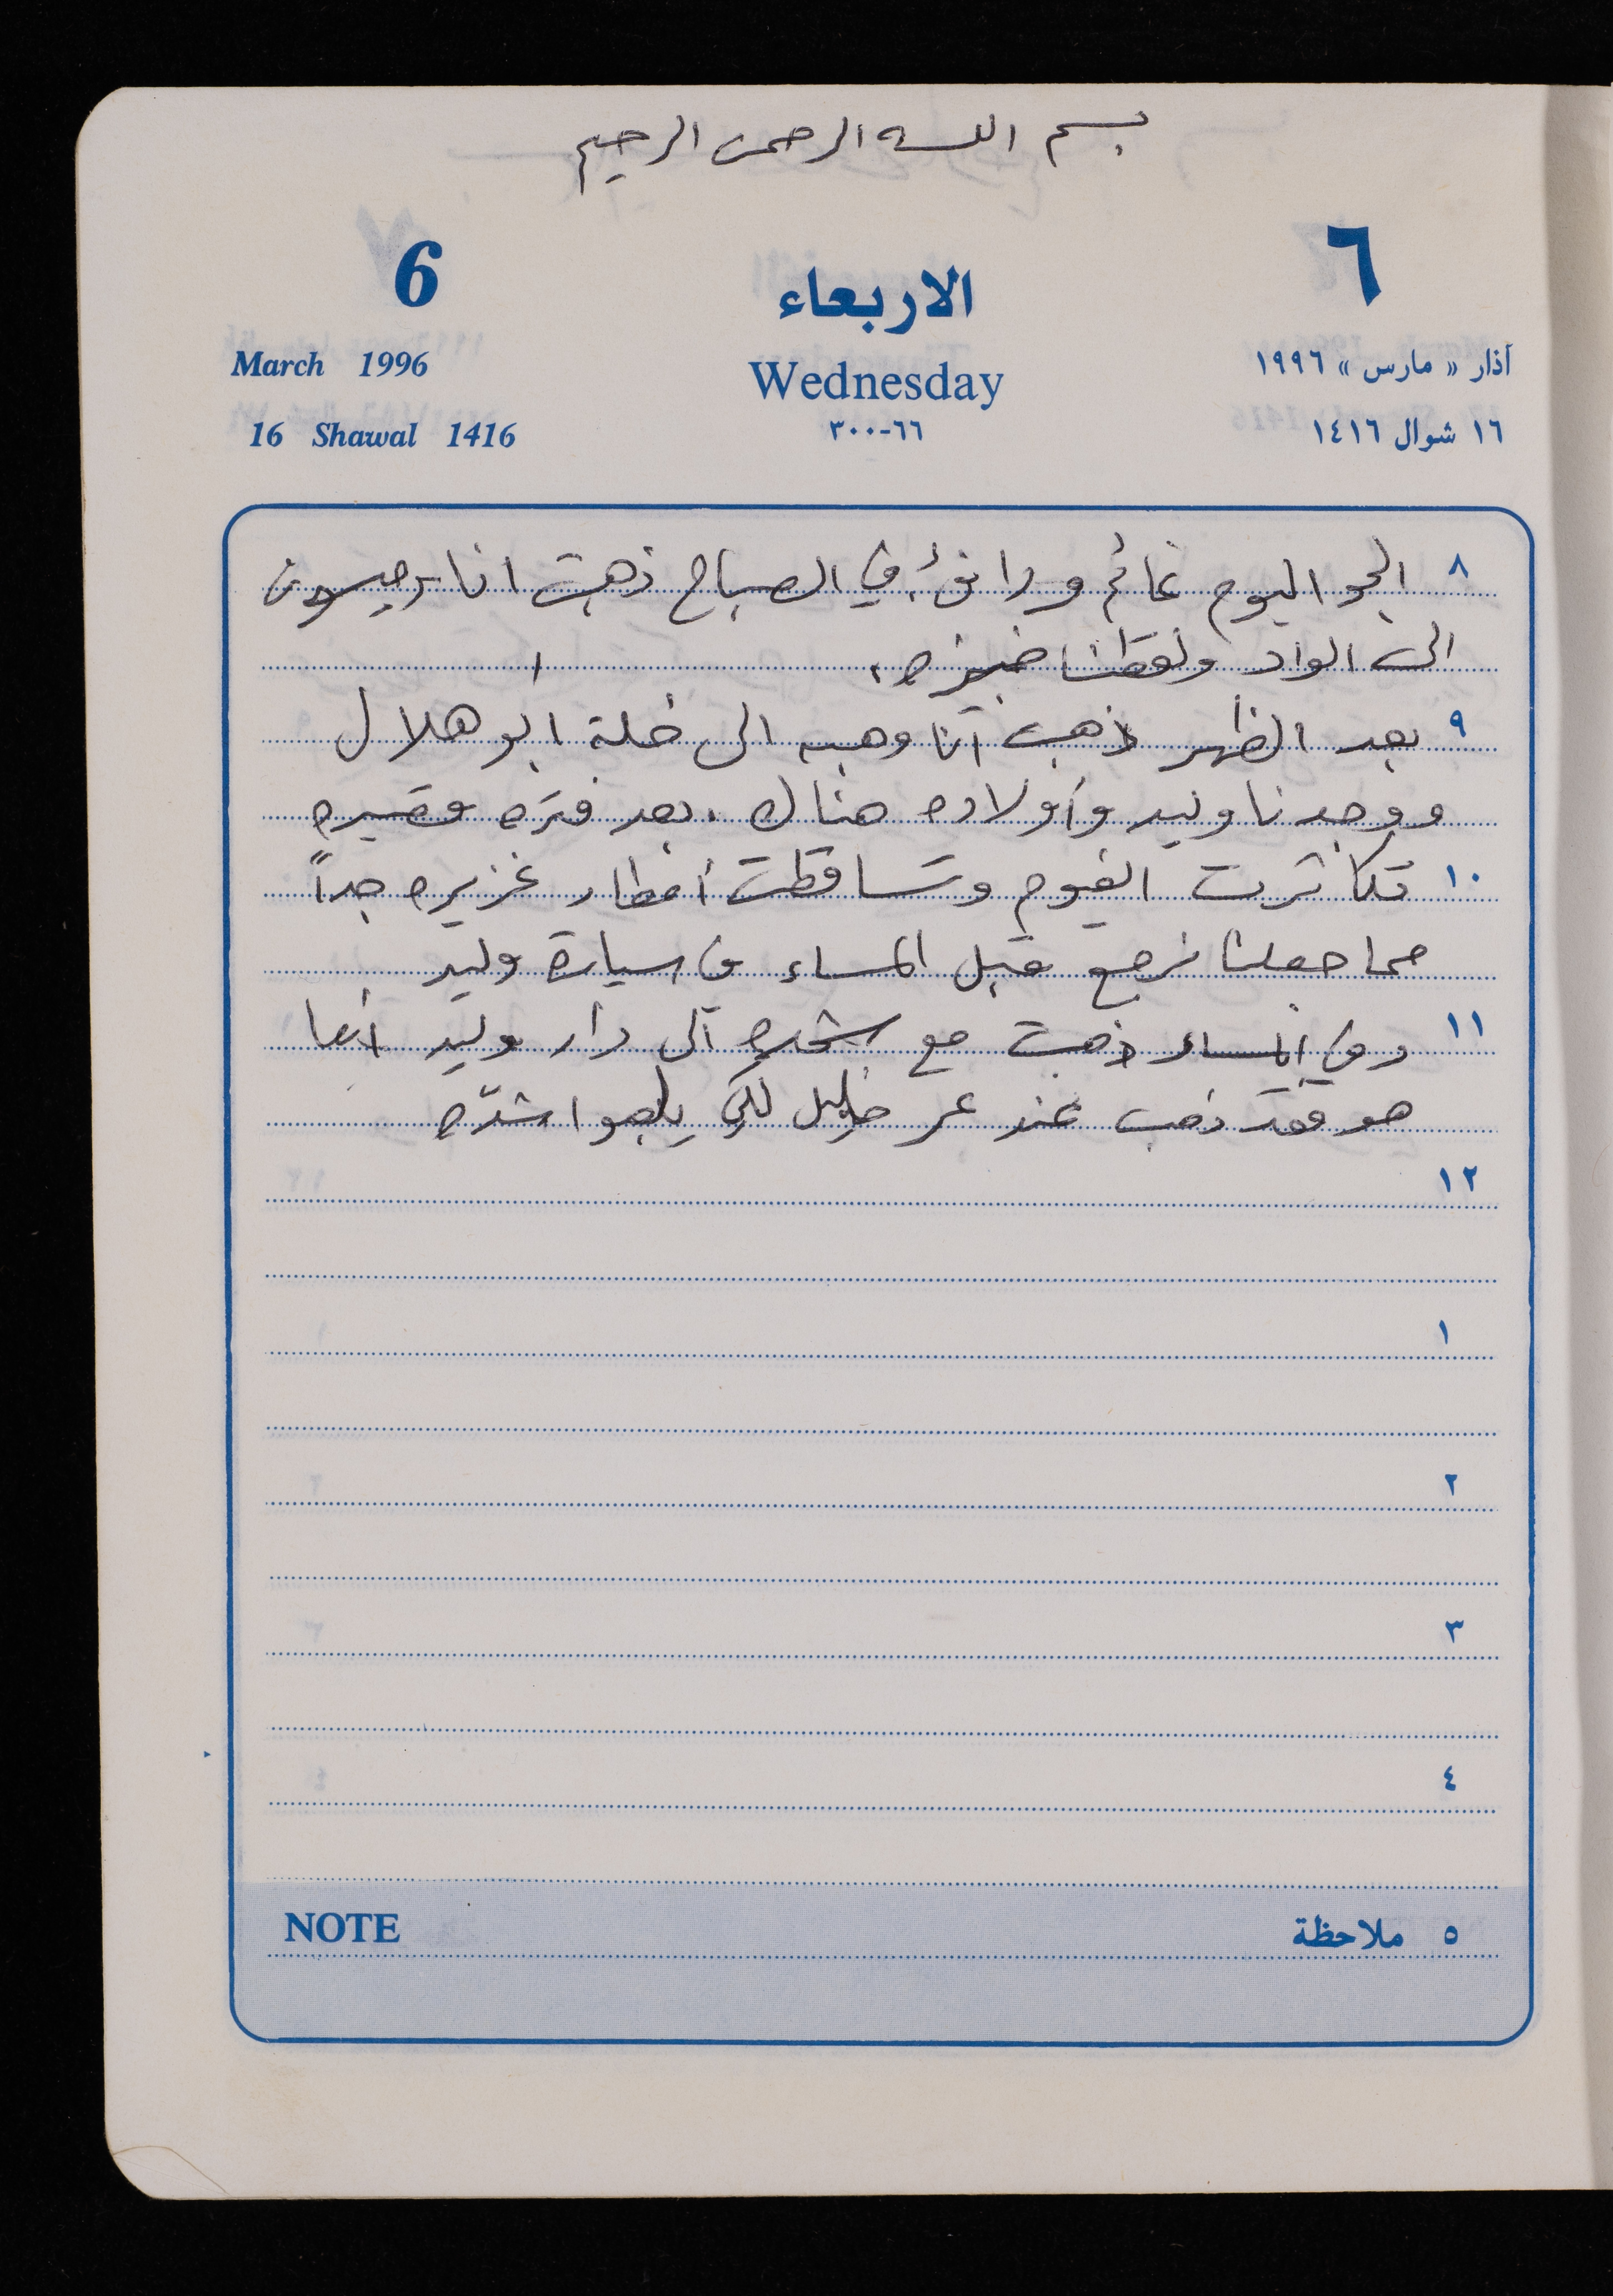 بسم الله الرحمن الرحيم
6 الاربعاء ٦
March 1996 Wednesday آذار « مارس » ١٩٩٦
16 Shawal 1416 ٦٦-٣٠٠ ١٦ شوال ١٤١٦
٨ الجو اليوم غائم ودافئ. في الصباح ذهبت انا
الى الواد ولقطنا خبيزه.
٩ بعد الظهر ذهبت أنا وهبه الى خلة ابو هلال
ووجدنا وليد وأولاده هناك. بعد فتره قصيره
١٠ تكاثرت الغيوم وتساقطت أمطار غزيره جداً
مما جعلنا نرجع قبل المساء في سيارة وليد
١١ وفي المساء ذهبت مع الى دار وليد أما
هو فقد ذهب عند عمر خليل لكي يلعبوا شدّه
١٢
١
٢
٣
٤
٥ ملاحظة NOTE